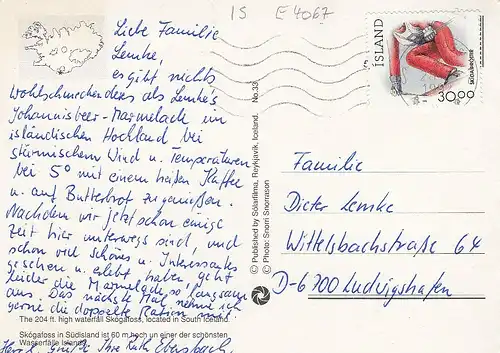 IS E 4067
Liebe Familie
Lemke,
es gibt nichts
Wohlschmeckenderes als Lemke's
Johannisbeer-Marmelade im
isländischen Hochland bei
stürmischem Wind u. Temperaturen
bei 5° mit einem heißen Kaffee
u. auf Butterbrot zu genießen.
Nachdem wir jetzt schon einige
Zeit hier unterwegs sind, und
schon viel schönes u. Interessantes
gesehen u. erlebt haben, geht
leider die Marmelade so langsam
aus. Das nächste Mal nehme ich
gerne die doppelte Ration mit
The 204 ft. high waterfall Skógafoss, located in South Iceland.
Skógafoss in Südisland ist 60 m hoch un einer der schönsten
Wasserfälle Islands.
Herzl. Grüße Ihre Ruth Ebersbach
© Published by Sólarfilma, Reykjavík, Iceland. No.33
© Photo: Snorri Snorrason
ÍSLAND
30.00
Familie
Dieter Lemke
Wittelsbachstraße 64
D-6700 Ludwigshafen